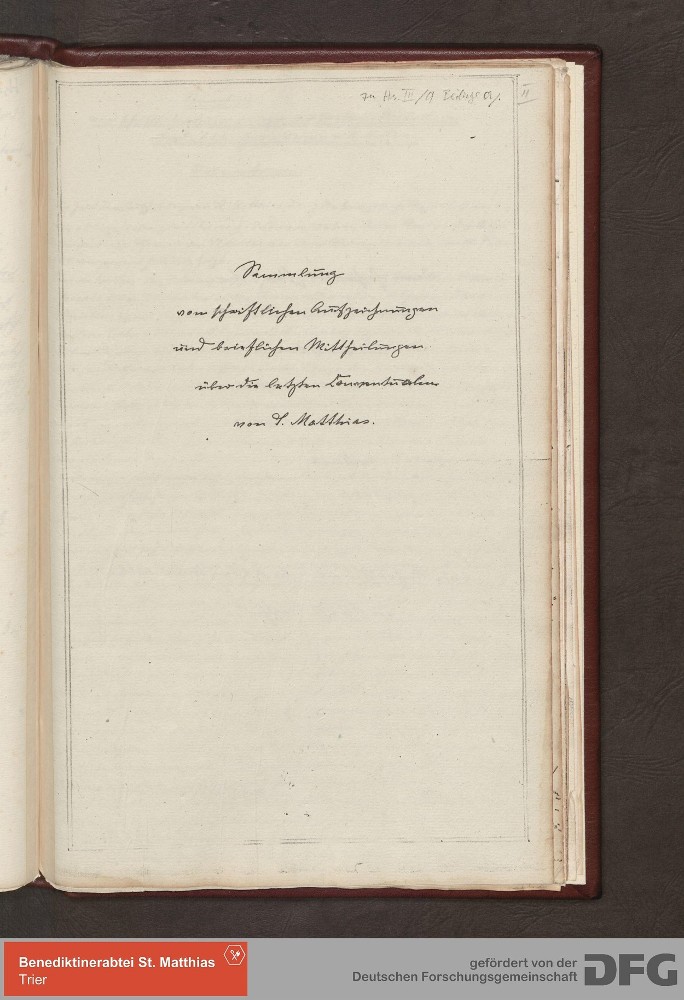 zu Hs. III/17 Beilage
II
Sammlung
von schriftlichen Aufzeichnungen
und brieflichen Mittheilungen
über die letzten Conventualen
von S. Matthias.
Benediktinerabtei St. Matthias
Trier
gefördert von der
Deutschen Forschungsgemeinschaft
DFG